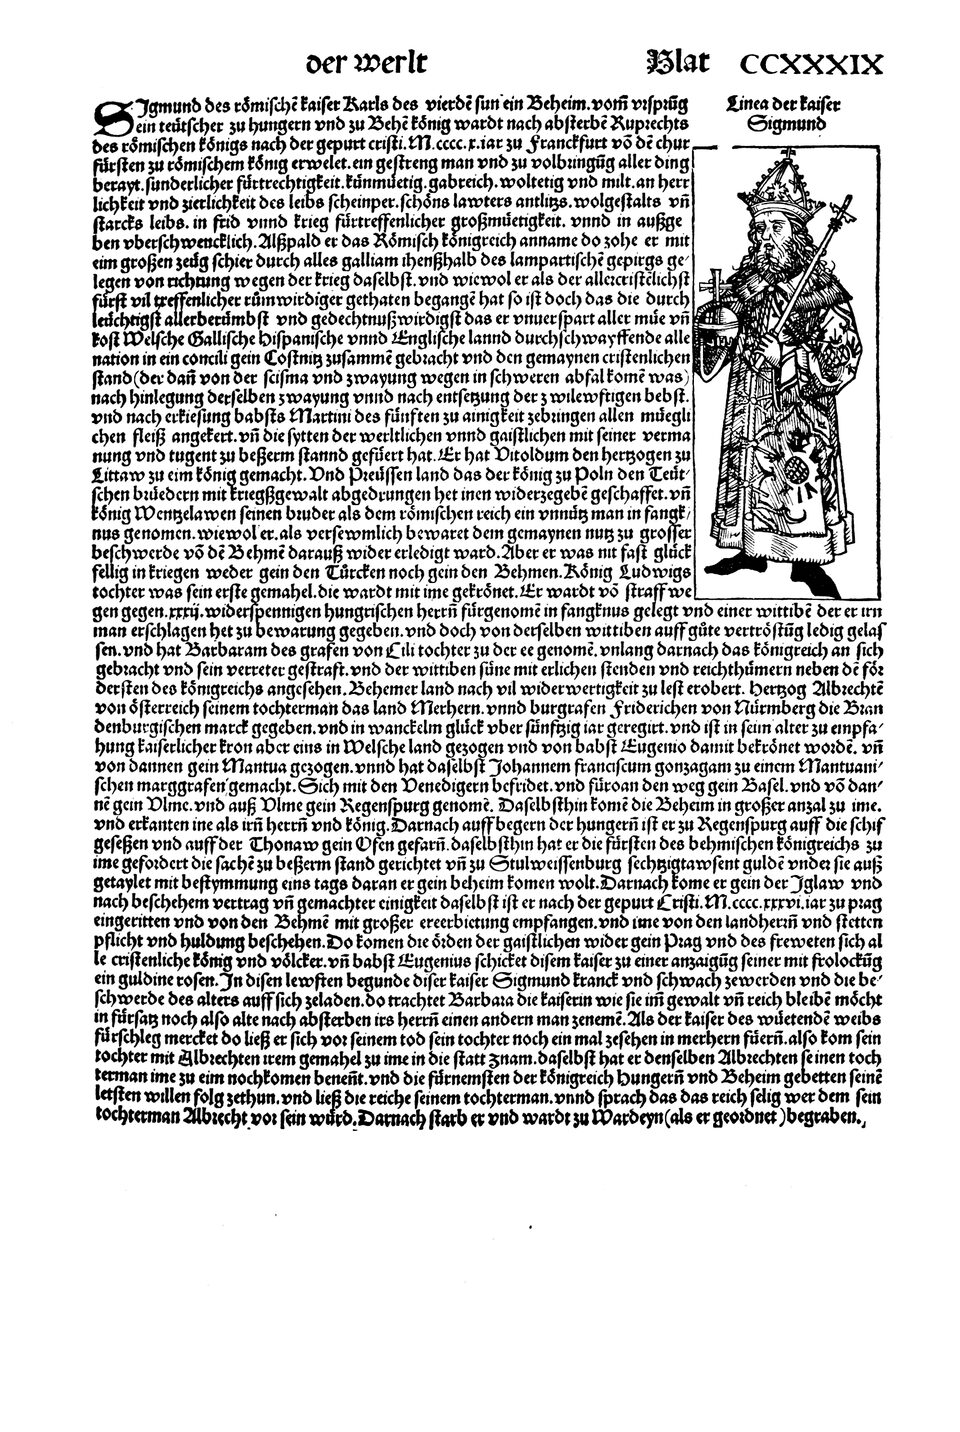 der werlt
Blat CCXXXIX
Linea der kaiser
Sigmund
SJgmund des römischē kaiser Karls des vierdē sun ein Beheim. vom̄ vrsprūg
ein teütscher zu hungern vnd zu Behē könig wardt nach absterbē Ruprechts
des römischen königs nach der gepurt cristi. M.cccc.x. iar zu Franckfurt vō dē chur
fürsten zu römischem könig erwelet. ein gestreng man vnd zu volbringūg aller ding
berayt. sunderlicher fürtrechtigkeit. künmüetig. gabreich. woltetig vnd milt. an herr
lichkeit vnd zierlichkeit des leibs scheinper. schöns lawters antlitzs. wolgestalts vn̄
starcks leibs. in frid vnnd krieg fürtreffenlicher großmüetigkeit. vnnd in außge
ben vberschwencklich. Alßpald er das Römisch königreich anname do zohe er mit
eim großen zeüg schier durch alles galliam ihenßhalb des lampartischē gepirgs ge-
legen von richtung wegen der krieg daselbst. vnd wiewol er als der allercristēlichst
fürst vil treffenlicher rümwirdiger gethaten begangē hat so ist doch das die durch
leüchtigst allerberümbst vnd gedechtnußwirdigst das er vnuerspart aller müe vn̄
kost Welsche Gallische Hispanische vnnd Englische lannd durchschwayffende alle
nation in ein concili gein Costnitz zusammē gebracht vnd den gemaynen cristenlichen
stand (der dan̄ von der scisma vnd zwayung wegen in schweren abfal komē was)
nach hinlegung derselben zwayung vnnd nach entsetzung der zwilewftigen bebst.
vnd nach erkiesung babsts Martini des fünften zu ainigkeit zebringen allen müegli
chen fleiß angekert. vn̄ die sytten der werltlichen vnnd gaistlichen mit seiner verma
nung vnd tugent zu beßerm stannd gefüert hat. Er hat Vitoldum den hertzogen zu
Littaw zu eim könig gemacht. Vnd Preüssen land das der könig zu Poln den Teüt-
schen brüedern mit kriegßgewalt abgedrungen het inen widerzegebē geschaffet. vn̄
könig Wentzelawen seinen bruder als dem römischen reich ein vnnütz man in fangk-
nus genomen. wiewol er. als versewmlich bewaret dem gemaynen nutz zu grosser
beschwerde vō dē Behmē darauß wider erledigt ward. Aber er was nit fast glück
fellig in kriegen weder gein den Türcken noch gein den Behmen. König Ludwigs
tochter was sein erste gemahel. die wardt mit ime gekrönet. Er wardt vō straff we
gen gegen. xxxij. widerspennigen hungrischen herrn̄ fürgenomē in fangknus gelegt vnd einer wittibē der er irn
man erschlagen het zu bewarung gegeben. vnd doch von derselben wittiben auff güte vertröstūg ledig gelas
sen. vnd hat Barbaram des grafen von Cili tochter zu der ee genomē. vnlang darnach das königreich an sich
gebracht vnd sein verreter gestraft. vnd der wittiben süne mit erlichen stenden vnd reichthümern neben dē för
dersten des königreichs angesehen. Behemer land nach vil widerwertigkeit zu lest erobert. Hertzog Albrechtē
von österreich seinem tochterman das land Merhern. vnnd burgrafen Friderichen von Nürmberg die Bran
denburgischen marck gegeben. vnd in wanckelm glück vber fünftzig iar geregirt. vnd ist in seim alter zu empfa-
hung kaiserlicher kron aber eins in Welsche land gezogen vnd von babst Eugenio damit bekrönet wordē. vn̄
von dannen gein Mantua gezogen. vnnd hat daselbst Johannem franciscum gonzagam zu einem Mantuani-
schen marggrafen gemacht. Sich mit den Venedigern befridet. vnd füroan den weg gein Basel. vnd vō dan-
nē gein Vlme. vnd auß Vlme gein Regenspurg genomē. Daselbsthin komē die Beheim in großer anzal zu ime.
vnd erkanten ine als irn̄ herrn̄ vnd könig. Darnach auff begern der hungern̄ ist er zu Regenspurg auff die schif
geseßen vnd auff der Thonaw gein Ofen gefarn̄. daselbsthin hat er die fürsten des behmischen königreichs zu
ime gefordert die sachē zu beßerm stand gerichtet vn̄ zu Stulweissenburg sechtzigtawsent guldē vnder sie auß
getaylet mit bestymmung eins tags daran er gein beheim komen wolt. Darnach kome er gein der Jglaw vnd
nach beschehem vertrag vn̄ gemachter einigkeit daselbst ist er nach der gepurt Cristi. M.cccc.xxxvi. iar zu prag
eingeritten vnd von den Behmē mit großer ereerbietung empfangen. vnd ime von den landherrn̄ vnd stetten
pflicht vnd huldung beschehen. Do komen die örden der gaistlichen wider gein Prag vnd des freweten sich al
le cristenliche könig vnd völcker. vn̄ babst Eugenius schicket disem kaiser zu einer anzaigūg seiner mit frolockūg
ein guldine rosen. Jn disen lewften begunde diser kaiser Sigmund kranck vnd schwach zewerden vnd die be-
schwerde des alters auff sich zeladen. do trachtet Barbara die kaiserin wie sie im̄ gewalt vn̄ reich bleibē möcht
in fürsatz noch also alte nach absterben irs herrn̄ einen andern man zenemē. Als der kaiser des wüetendē weibs
fürschleg mercket do ließ er sich vor seinem tod sein tochter noch ein mal zesehen in merhern füern̄. also kom sein
tochter mit Albrechten irem gemahel zu ime in die statt Znam. daselbst hat er denselben Albrechten seinen toch
terman ime zu eim nochkomen benen̄t. vnd die fürnemsten der königreich Hungern̄ vnd Beheim gebetten seinē
letsten willen folg zethun. vnd ließ die reiche seinem tochterman. vnnd sprach das das reich selig wer dem sein
tochterman Albrecht vor sein würd. Darnach starb er vnd wardt zu Wardeyn (als er geordnet) begraben.